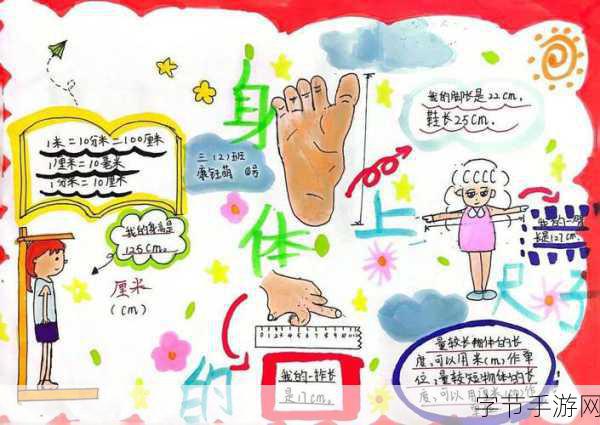 身
体
上
的
尺子
1米=10分米=100厘米
1厘米=10毫米
1分米=10厘米
三(2)班
号
我的脚长是22cm,
鞋长25cm。
我的身高是
125cm。
厘米
(cm)
我的一
长是127cm。
我的一拃长
是17cm。
量较长物体的长
度,可以用米(m)作单
位,量较短物体的长
度,可以用厘米(cm)作
字节手游网